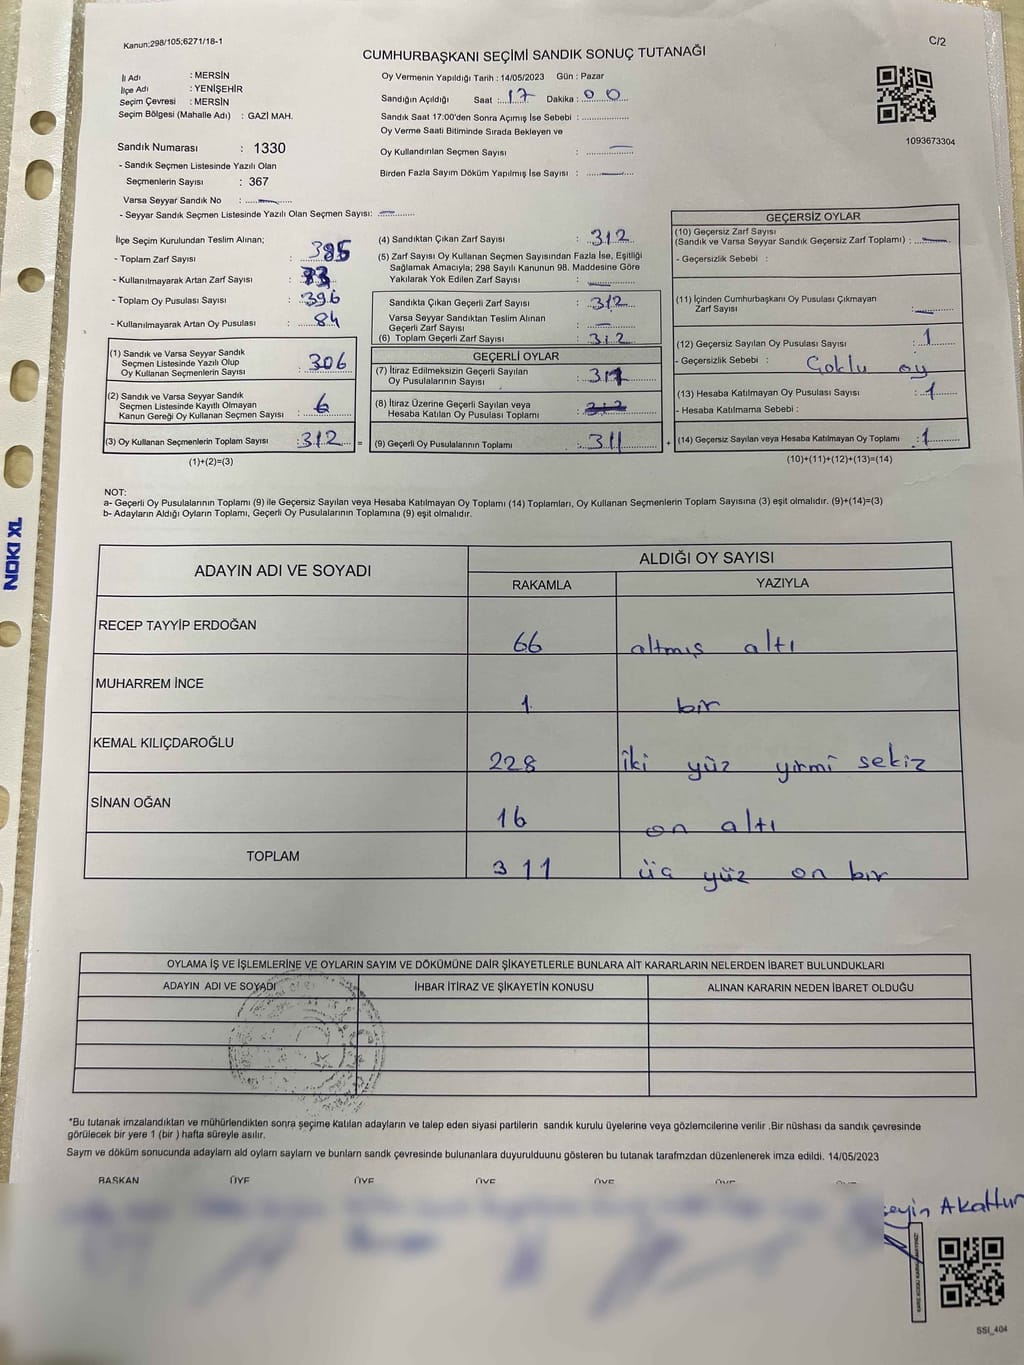 Kanun;298/105;6271/18-1
C/2
CUMHURBAŞKANI SEÇİMİ SANDIK SONUÇ TUTANAĞI
İl Adı : MERSİN
İlçe Adı : YENİŞEHİR
Seçim Çevresi : MERSİN
Seçim Bölgesi (Mahalle Adı) : GAZİ MAH.
Sandık Numarası : 1330
- Sandık Seçmen Listesinde Yazılı Olan
Seçmenlerin Sayısı : 367
Varsa Seyyar Sandık No :
- Seyyar Sandık Seçmen Listesinde Yazılı Olan Seçmen Sayısı:
Oy Vermenin Yapıldığı Tarih : 14/05/2023 Gün : Pazar
Sandığın Açıldığı Saat : 17 Dakika : 00
Sandık Saat 17:00'den Sonra Açımış İse Sebebi :
Oy Verme Saati Bitiminde Sırada Bekleyen ve
Oy Kullandırılan Seçmen Sayısı :
Birden Fazla Sayım Döküm Yapılmış İse Sayısı :
1093673304
İlçe Seçim Kurulundan Teslim Alınan;
- Toplam Zarf Sayısı :
- Kullanılmayarak Artan Zarf Sayısı :
- Toplam Oy Pusulası Sayısı : 396
- Kullanılmayarak Artan Oy Pusulası : 84
(1) Sandık ve Varsa Seyyar Sandık
Seçmen Listesinde Yazılı Olup
Oy Kullanan Seçmenlerin Sayısı : 306
(2) Sandık ve Varsa Seyyar Sandık
Seçmen Listesinde Kayıtlı Olmayan
Kanun Gereği Oy Kullanan Seçmen Sayısı : 6
(3) Oy Kullanan Seçmenlerin Toplam Sayısı : 312 =
(1)+(2)=(3)
(4) Sandıktan Çıkan Zarf Sayısı : 312
(5) Zarf Sayısı Oy Kullanan Seçmen Sayısından Fazla İse, Eşitliği
Sağlamak Amacıyla; 298 Sayılı Kanunun 98. Maddesine Göre
Yakılarak Yok Edilen Zarf Sayısı :
Sandıkta Çıkan Geçerli Zarf Sayısı : 312
Varsa Seyyar Sandıktan Teslim Alınan
Geçerli Zarf Sayısı :
(6) Toplam Geçerli Zarf Sayısı : 312
GEÇERLİ OYLAR
(7) İtiraz Edilmeksizin Geçerli Sayılan
Oy Pusulalarının Sayısı :
(8) İtiraz Üzerine Geçerli Sayılan veya
Hesaba Katılan Oy Pusulası Toplamı :
(9) Geçerli Oy Pusulalarının Toplamı : 311 +
GEÇERSİZ OYLAR
(10) Geçersiz Zarf Sayısı
(Sandık ve Varsa Seyyar Sandık Geçersiz Zarf Toplamı) :
- Geçersizlik Sebebi :
(11) İçinden Cumhurbaşkanı Oy Pusulası Çıkmayan
Zarf Sayısı :
(12) Geçersiz Sayılan Oy Pusulası Sayısı : 1
- Geçersizlik Sebebi : Çoklu oy
(13) Hesaba Katılmayan Oy Pusulası Sayısı : 1
- Hesaba Katılmama Sebebi :
(14) Geçersiz Sayılan veya Hesaba Katılmayan Oy Toplamı : 1
(10)+(11)+(12)+(13)=(14)
NOT:
a- Geçerli Oy Pusulalarının Toplamı (9) ile Geçersiz Sayılan veya Hesaba Katılmayan Oy Toplamı (14) Toplamları, Oy Kullanan Seçmenlerin Toplam Sayısına (3) eşit olmalıdır. (9)+(14)=(3)
b- Adayların Aldığı Oyların Toplamı, Geçerli Oy Pusulalarının Toplamına (9) eşit olmalıdır.
ADAYIN ADI VE SOYADI ALDIĞI OY SAYISI
RAKAMLA YAZIYLA
RECEP TAYYİP ERDOĞAN 66 altmış altı
MUHARREM İNCE 1 bir
KEMAL KILIÇDAROĞLU 228 iki yüz yirmi sekiz
SİNAN OĞAN 16 on altı
TOPLAM 311 üç yüz on bir
OYLAMA İŞ VE İŞLEMLERİNE VE OYLARIN SAYIM VE DÖKÜMÜNE DAİR ŞİKAYETLERLE BUNLARA AİT KARARLARIN NELERDEN İBARET BULUNDUKLARI
ADAYIN ADI VE SOYADI İHBAR İTİRAZ VE ŞİKAYETİN KONUSU ALINAN KARARIN NEDEN İBARET OLDUĞU
*Bu tutanak imzalandıktan ve mühürlendikten sonra seçime katılan adayların ve talep eden siyasi partilerin sandık kurulu üyelerine veya gözlemcilerine verilir .Bir nüshası da sandık çevresinde
görülecek bir yere 1 (bir ) hafta süreyle asılır.
Sayım ve döküm sonucunda adayların ald oyların sayların ve bunların sandk çevresinde bulunanlara duyurulduunu gösteren bu tutanak tarafmzdan düzenlenerek imza edildi. 14/05/2023
BAŞKAN ÜYE ÜYE ÜYE ÜYE ÜYE ÜYE
Akattun
SSI_404
NOKI XL